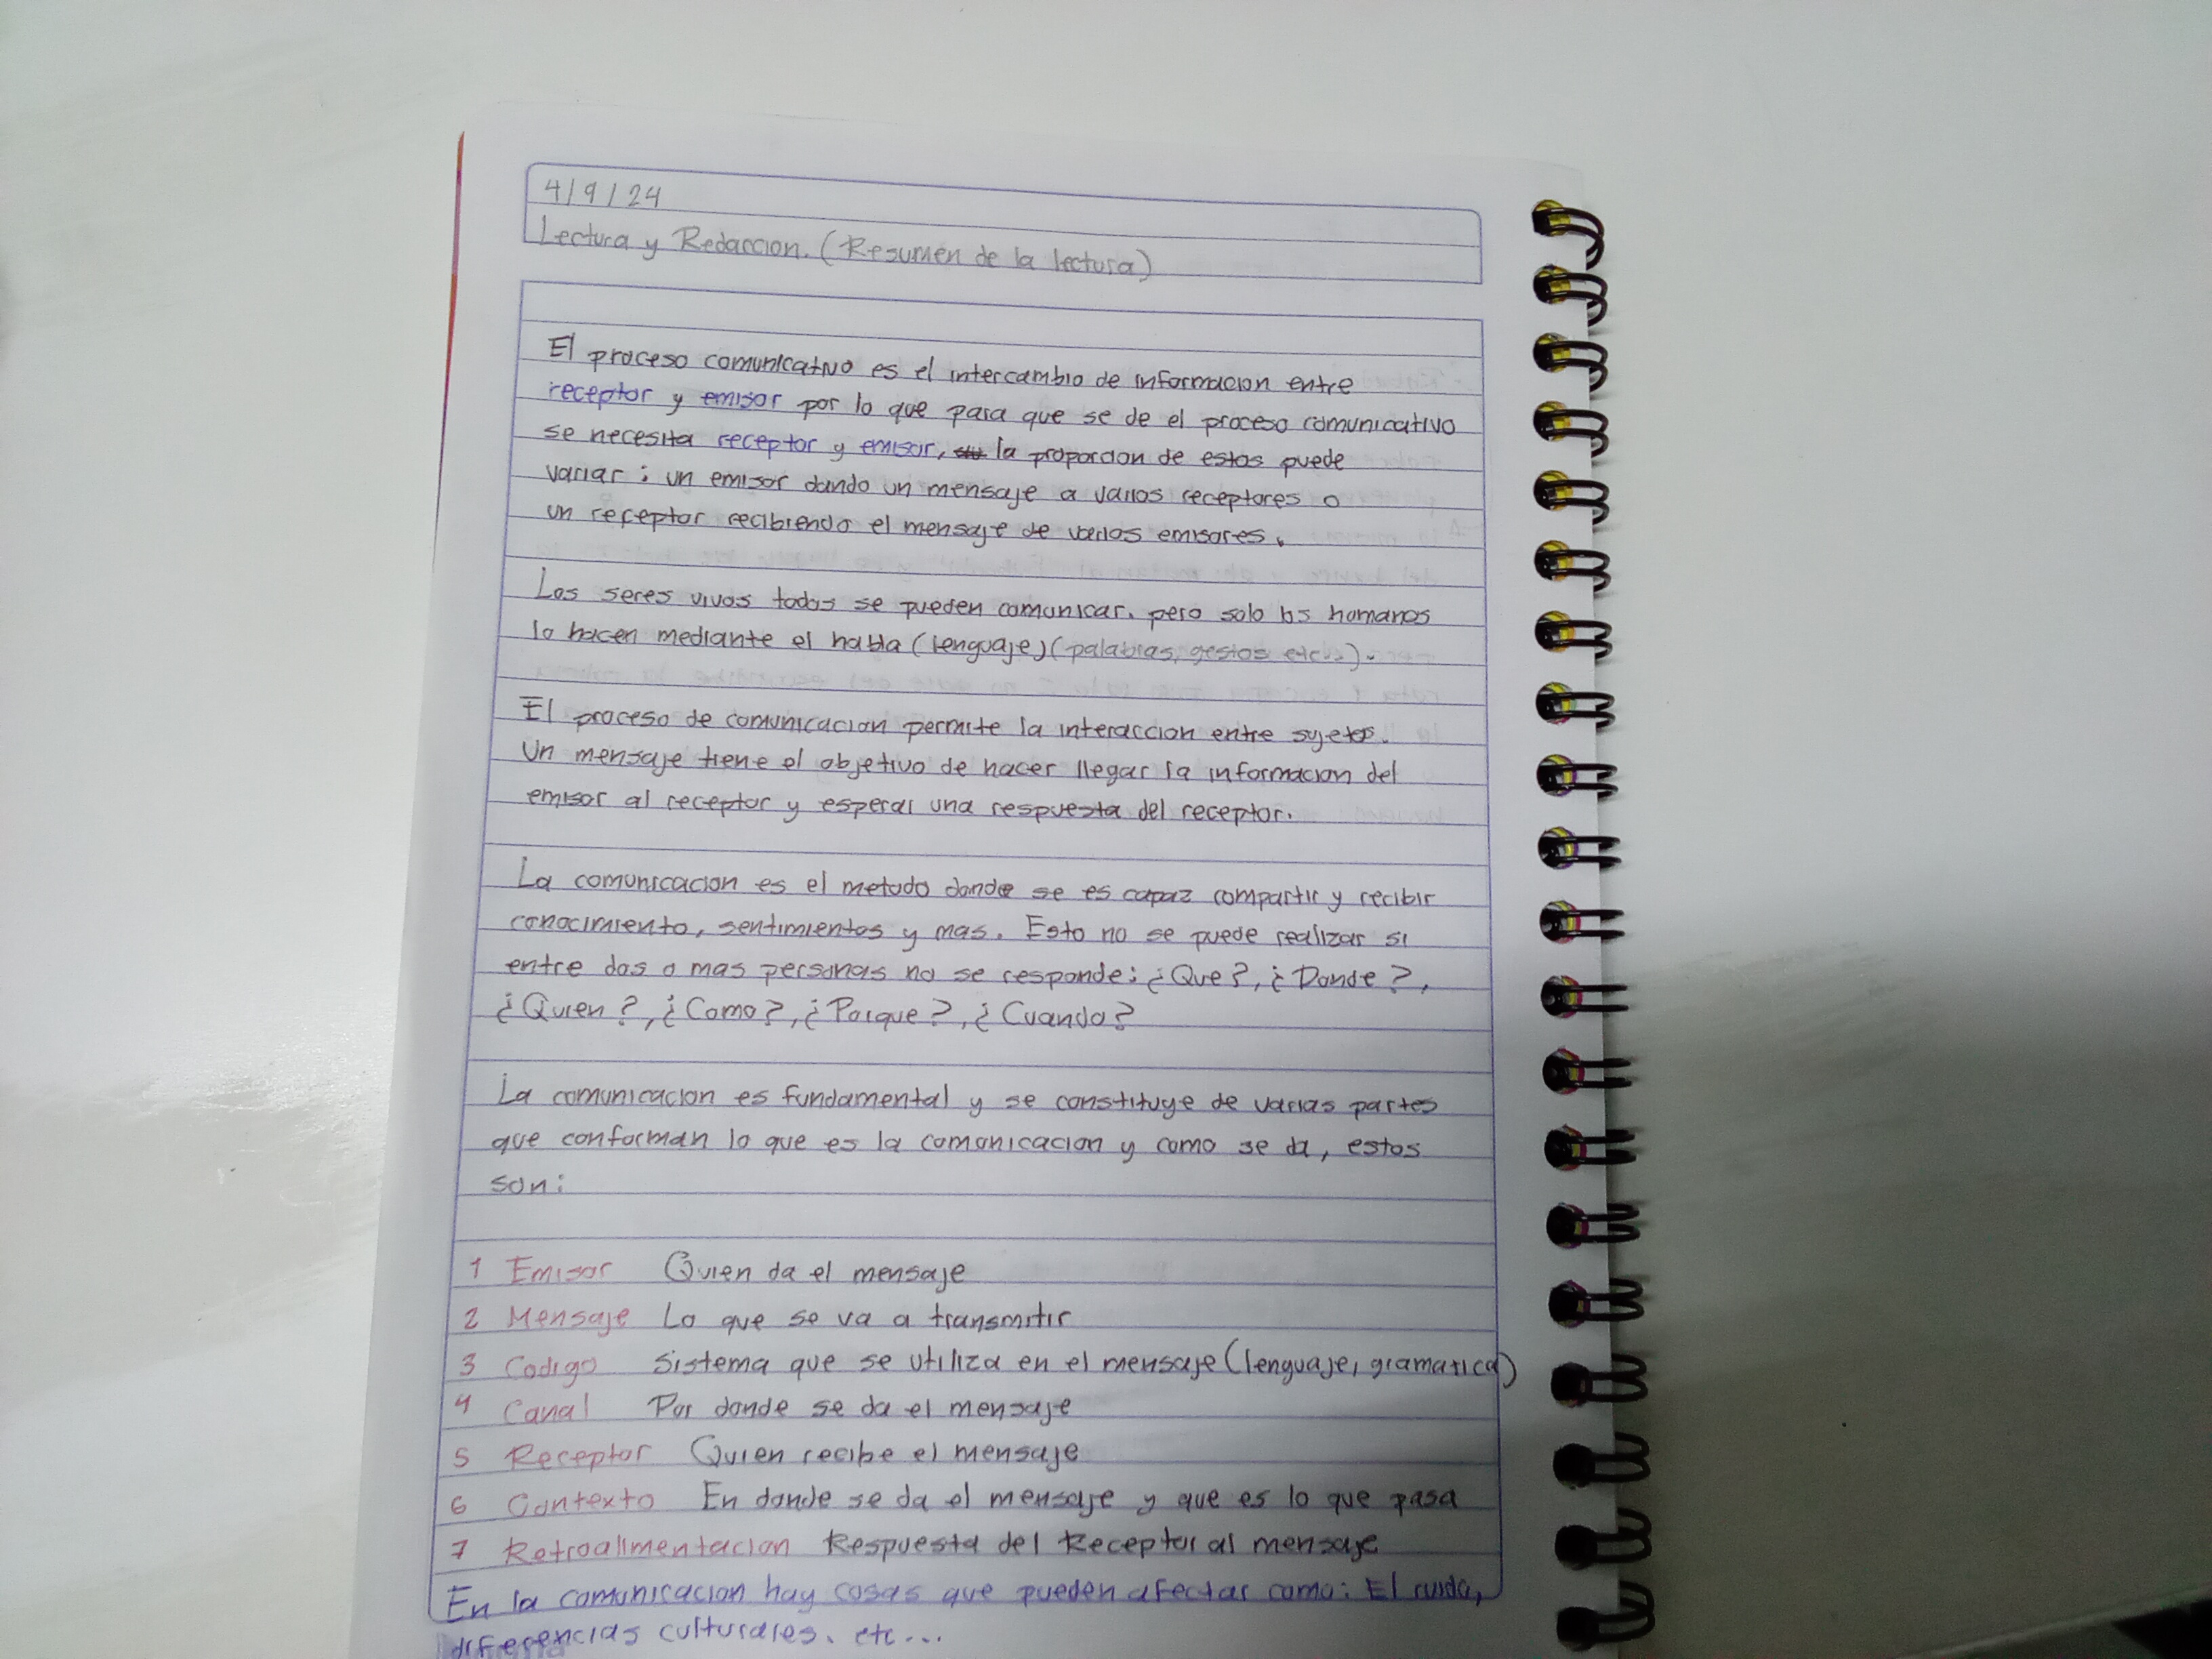 4/9/24
Lectura y Redaccion. (Resumen de la lectura)
El proceso comunicativo es el intercambio de informacion entre
receptor y emisor por lo que para que se de el proceso comunicativo
se necesita receptor y emisor, la proporcion de estos puede
variar: un emisor dando un mensaje a varios receptores o
un receptor recibiendo el mensaje de varios emisores.
Los seres vivos todos se pueden comunicar, pero solo los humanos
lo hacen mediante el habla (lenguaje) (palabras, gestos etc...).
El proceso de comunicacion permite la interaccion entre sujetos.
Un mensaje tiene el objetivo de hacer llegar la informacion del
emisor al receptor y esperar una respuesta del receptor.
La comunicacion es el metodo donde se es capaz compartir y recibir
conocimiento, sentimientos y mas. Esto no se puede realizar si
entre dos o mas personas no se responde: ¿Que?, ¿Donde?,
¿Quien?, ¿Como?, ¿Porque?, ¿Cuando?
La comunicacion es fundamental y se constituye de varias partes
que conforman lo que es la comunicacion y como se da, estos
son:
1 Emisor Quien da el mensaje
2 Mensaje Lo que se va a transmitir
3 Codigo Sistema que se utiliza en el mensaje (lenguaje, gramatica)
4 Canal Por donde se da el mensaje
5 Receptor Quien recibe el mensaje
6 Contexto En donde se da el mensaje y que es lo que pasa
7 Retroalimentacion Respuesta del Receptor al mensaje
En la comunicacion hay cosas que pueden afectar como: El ruido,
diferencias culturales, etc...